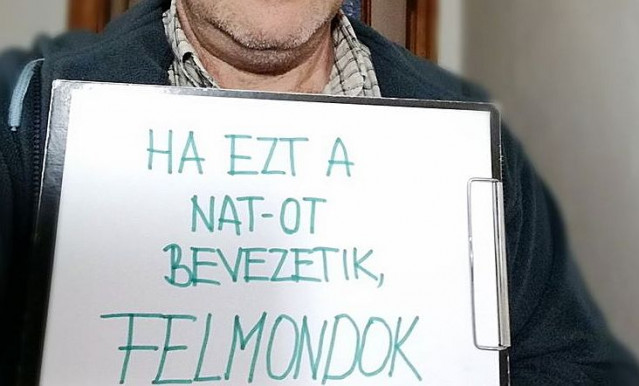 HA EZT A
NAT-OT
BEVEZETIK,
FELMONDOK